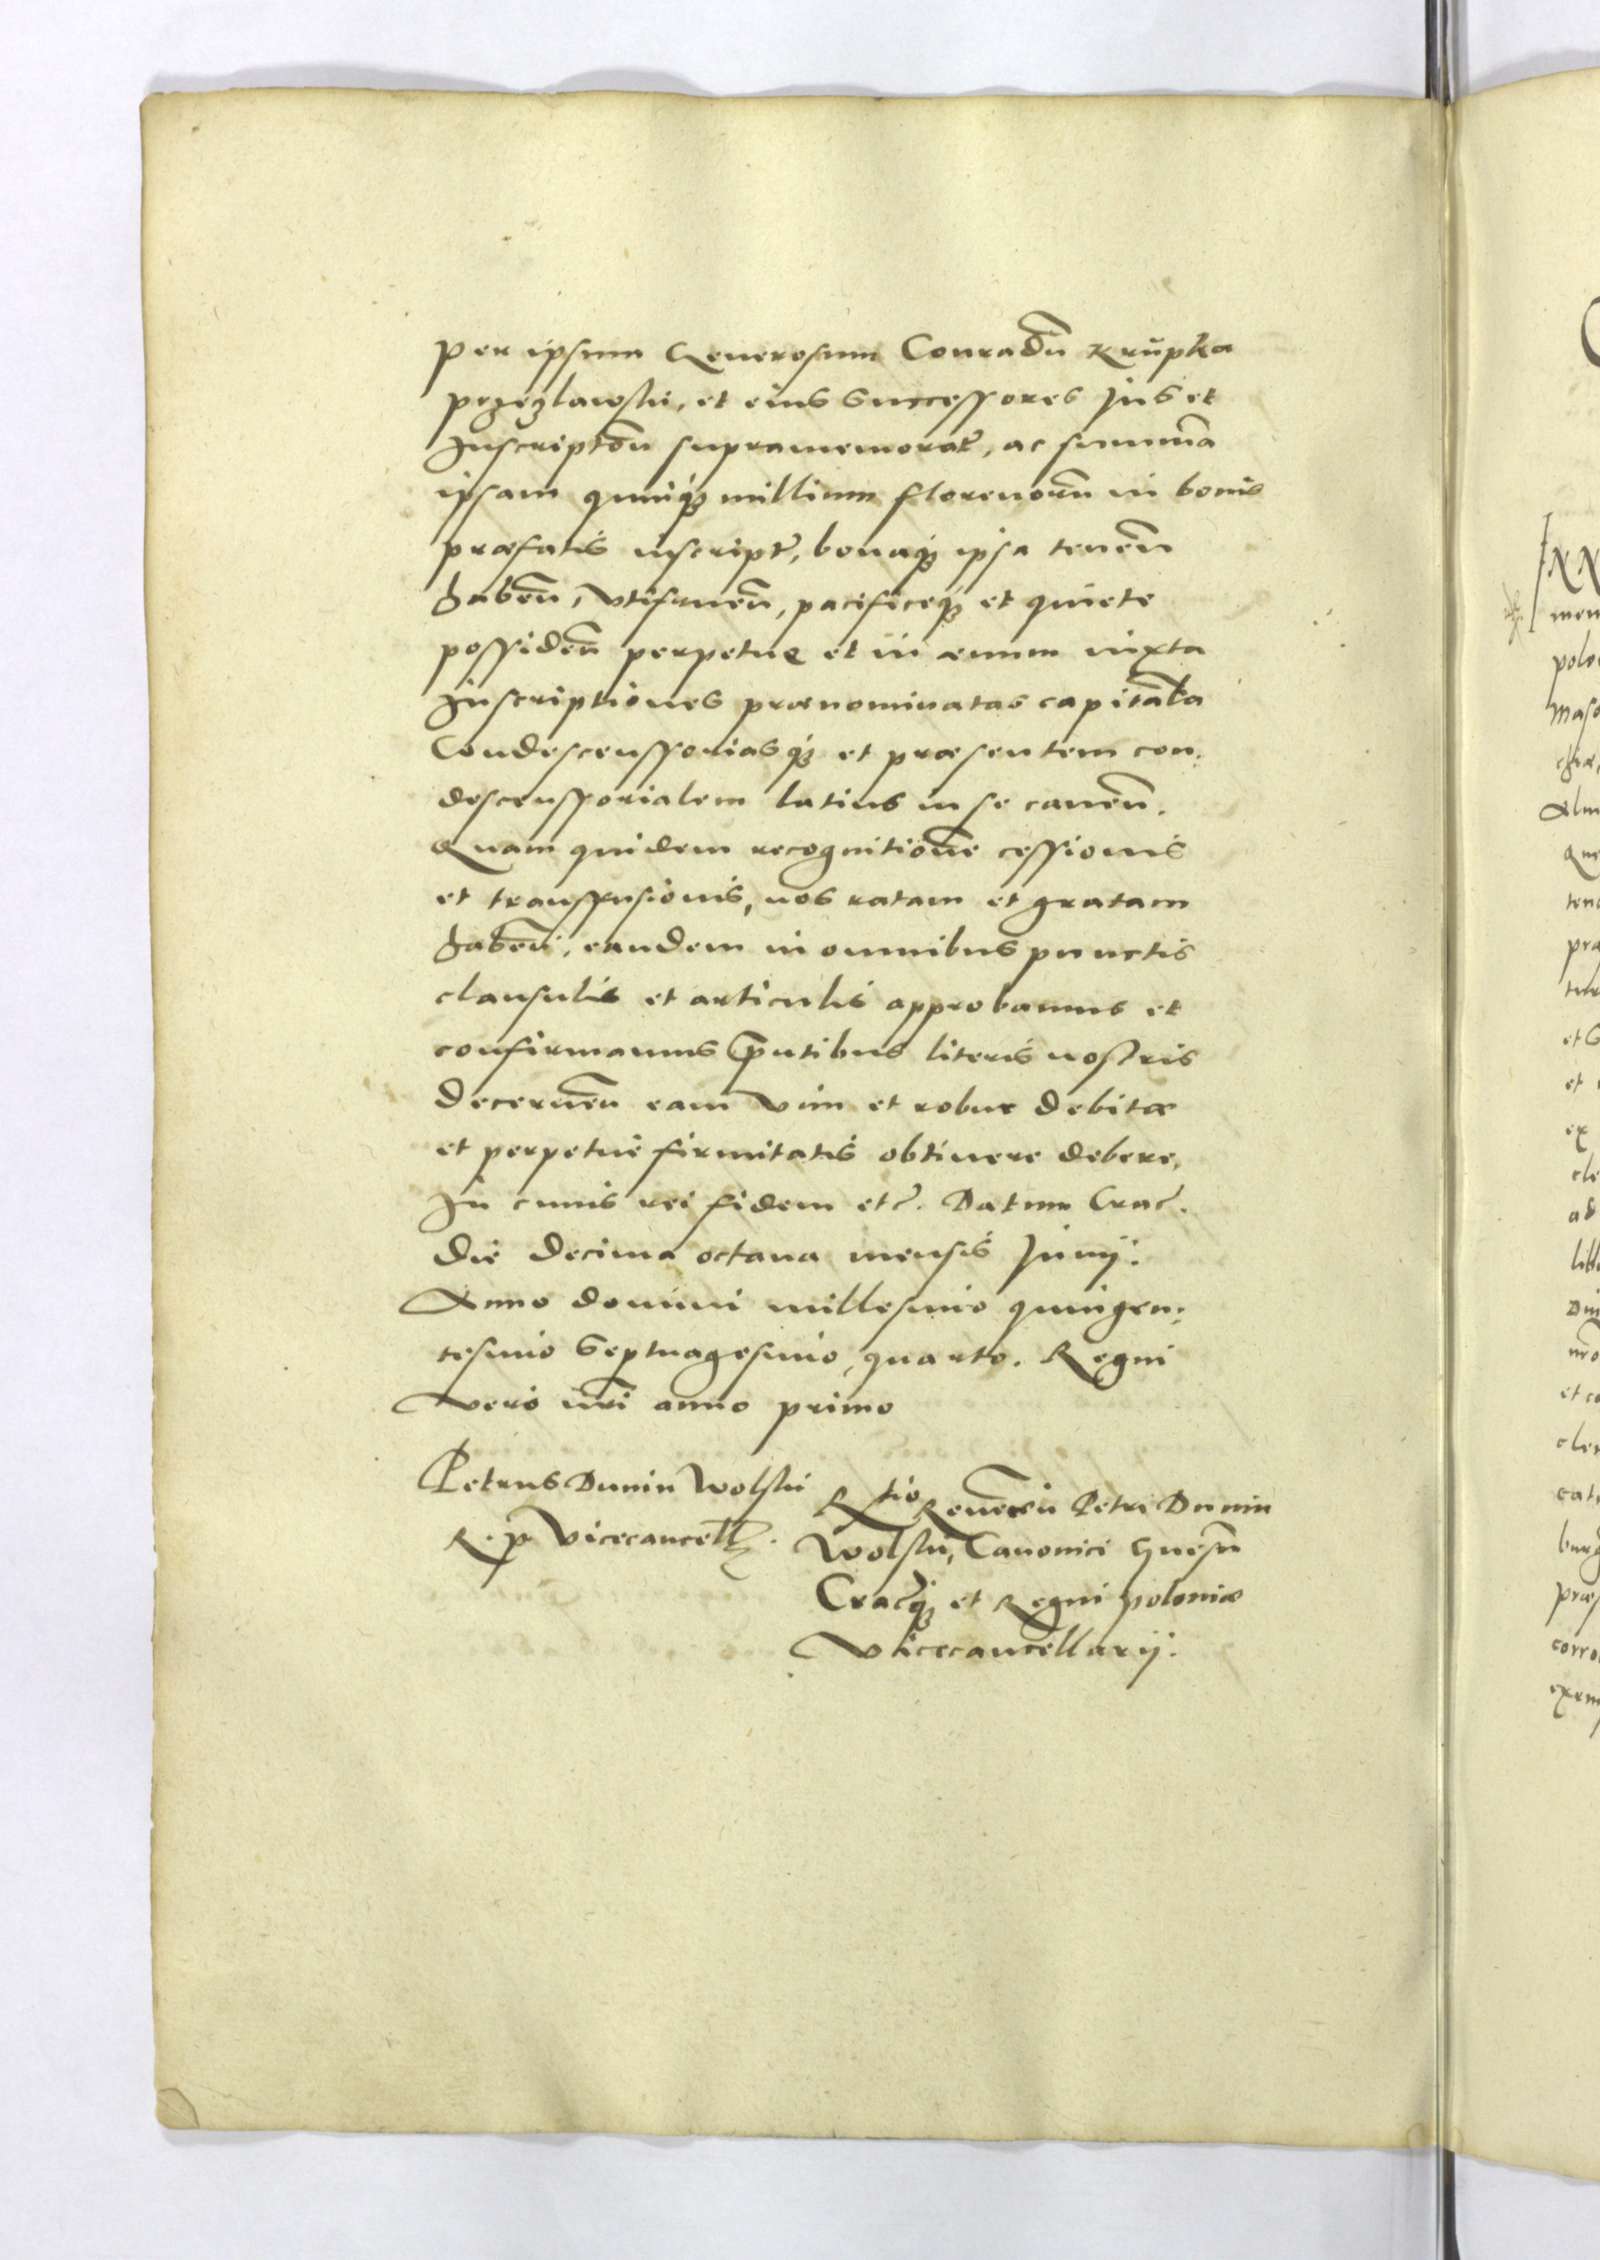 per ipsum Generosum Conradũ Krupka
przezlawski, et eius successores jus et
Inscriptõn supramemorat, ac summã
ipsam quinqꝫ millium florenorũ in bonis
præfatis inscript, bonaqꝫ ipsa teneñ
habeñ, vtifrueñ, pacificeqꝫ et quiete
possideñ perpetue et in æuum iuxta
Inscriptiones prænominatas capitãla
Condescenssoriasqꝫ et præsentem con:
descenssorialem latius in se caueñ.
Quam quidem recognitionẽ cessionis
et transfusionis, nos ratam et gratam
habeñ, eandem in omnibus punctis
clausulis et articulis approbamus et
confirmamus pñtibus literis nostris
decerneñ eam vim et robur debitæ
et perpetuę firmitatis obtinere debere,
In cuius rei fidem etc. Datum Crac.
die decima octaua mensis Junij:
Anno domini millesimo quingen:
tesimo Septuagesimo, quarto. Regni
vero nri anno primo
Petrus Dunin Wolski
R. p. Vicecancell.
Rtio Reuerẽn Petri Dunin
Wolski, Canonici Gnesñ
Cracqꝫ et Regni poloniæ
Vicecancellarij: